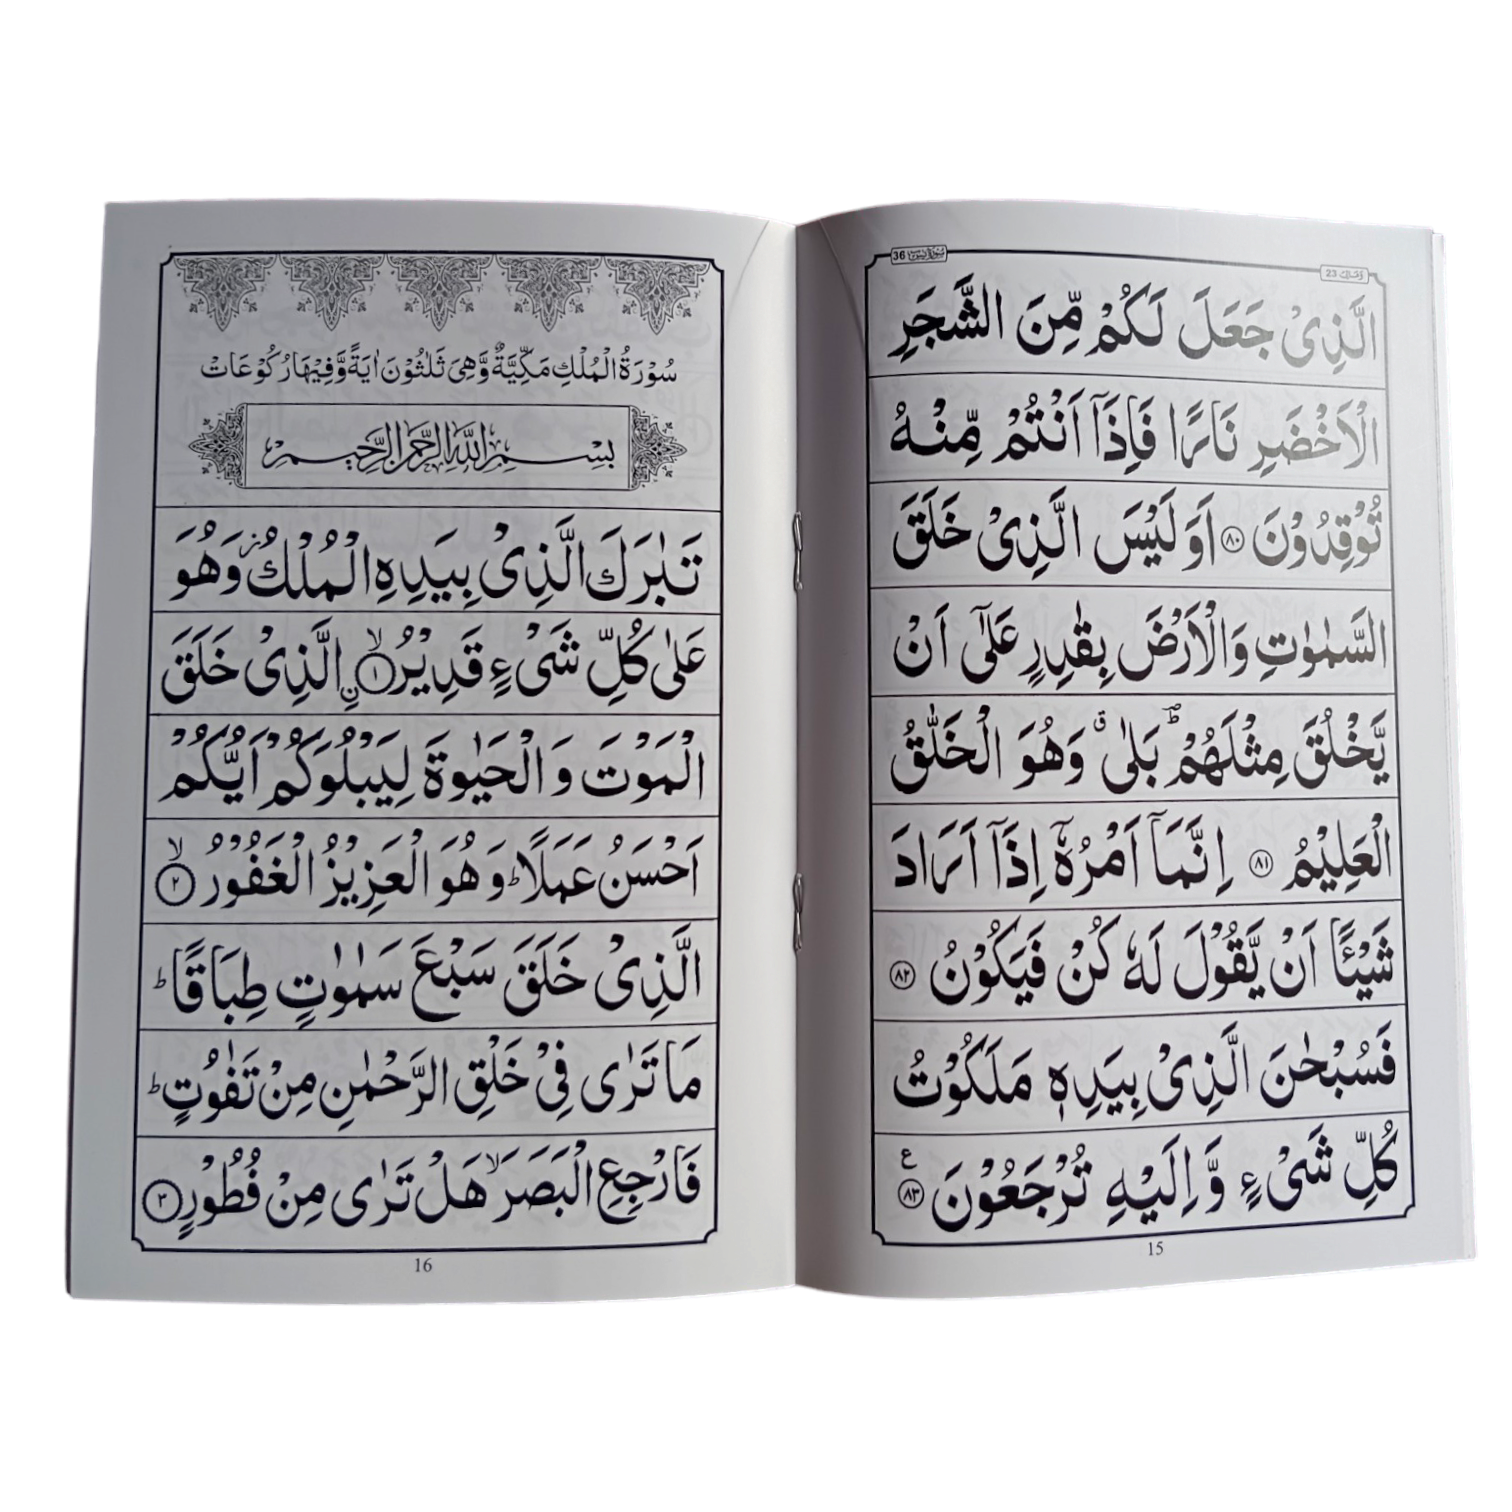 سُوْرَةُ يٰسٓ 36
وَمَالِیَ 23
الَّذِیْ جَعَلَ لَكُمْ مِّنَ الشَّجَرِ
الْاَخْضَرِ نَارًا فَاِذَاۤ اَنْتُمْ مِّنْهُ
تُوْقِدُوْنَ ۝۸۰ اَوَلَیْسَ الَّذِیْ خَلَقَ
السَّمٰوٰتِ وَالْاَرْضَ بِقٰدِرٍ عَلٰۤی اَنْ
یَّخْلُقَ مِثْلَهُمْ ؕ بَلٰی ۗ وَهُوَ الْخَلّٰقُ
الْعَلِیْمُ ۝۸۱ اِنَّمَاۤ اَمْرُهٗۤ اِذَاۤ اَرَادَ
شَیْـًٔا اَنْ یَّقُوْلَ لَهٗ كُنْ فَیَكُوْنُ ۝۸۲
فَسُبْحٰنَ الَّذِیْ بِیَدِهٖ مَلَكُوْتُ
كُلِّ شَیْءٍ وَّاِلَیْهِ تُرْجَعُوْنَ ۝۸۳ ع
15
سُوْرَةُ الْمُلْكِ مَكِّیَّةٌ وَّهِیَ ثَلٰثُوْنَ اٰیَةً وَّفِیْهَا رُكُوْعَاتْ
بِسْمِ اللّٰهِ الرَّحْمٰنِ الرَّحِیْمِ
تَبٰرَكَ الَّذِیْ بِیَدِهِ الْمُلْكُ ؗ وَهُوَ
عَلٰی كُلِّ شَیْءٍ قَدِیْرُ ۙ۝۱ نِ الَّذِیْ خَلَقَ
الْمَوْتَ وَالْحَیٰوةَ لِیَبْلُوَكُمْ اَیُّكُمْ
اَحْسَنُ عَمَلًا ؕ وَهُوَ الْعَزِیْزُ الْغَفُوْرُ ۙ۝۲
الَّذِیْ خَلَقَ سَبْعَ سَمٰوٰتٍ طِبَاقًا ؕ
مَا تَرٰی فِیْ خَلْقِ الرَّحْمٰنِ مِنْ تَفٰوُتٍ ؕ
فَارْجِعِ الْبَصَرَ ۙ هَلْ تَرٰی مِنْ فُطُوْرٍ ۝۳
16